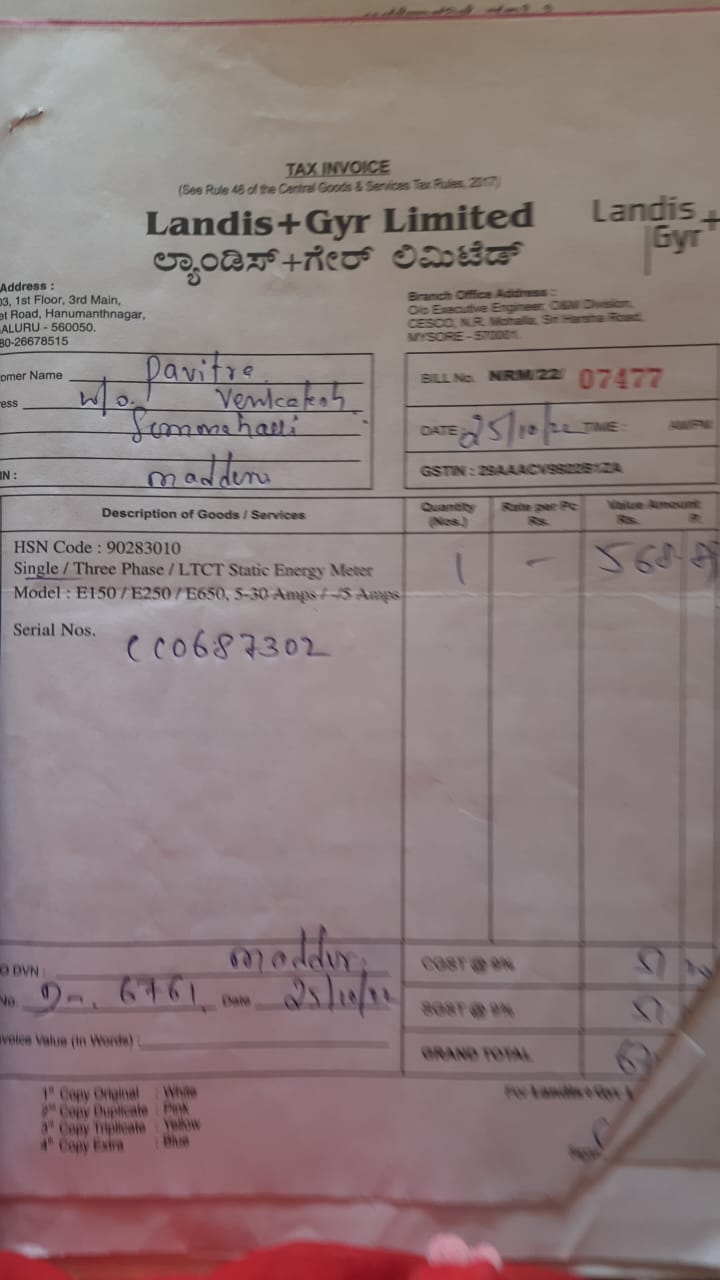 TAX INVOICE
(See Rule 46 of the Central Goods & Services Tax Rules, 2017)
Landis+Gyr Limited
ಲ್ಯಾಂಡಿಸ್+ಗೇರ್ ಲಿಮಿಟೆಡ್
Landis+
Gyr
Address :
03, 1st Floor, 3rd Main,
et Road, Hanumanthnagar,
ALURU - 560050.
80-26678515
Branch Office Address :
O/o Executive Engineer, O&M Division,
CESCO, N.R. Mohalla, Sri Harsha Road,
MYSORE - 570001.
omer Name Pavitra
ess w/o. Venkatesh
maddur
IN :
BILL No. NRM/22/ 07477
DATE 25/10/22 TIME : AM/PM
GSTIN :
Description of Goods / Services
Quantity (Nos.)
Rate per Pc Rs.
Value Amount Rs. P.
HSN Code : 90283010
Single / Three Phase / LTCT Static Energy Meter
Model : E150 / E250 / E650, 5-30 Amps / -/5 Amps
1 - 568
Serial Nos. CC0687302
O DVN : maddur.
No. 6761 Date 25/10/22
nvoice Value (In Words) :
CGST @ 9% 51
SGST @ 9% 51
GRAND TOTAL
1st Copy Original : White
2nd Copy Duplicate : Pink
3rd Copy Triplicate : Yellow
4th Copy Extra : Blue
For Landis+Gyr